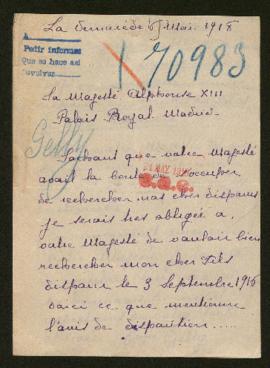 La 6 Mai 1918
A
Pedir informes
Que se hace así
170983
Sa Magesté Alphonse XIII
Palais Royal Madrid
Sachant que votre Magesté
avait la bonté de s'occuper
de rechercher nos cher disparus
je serais très obligée a
votre Magesté de vouloir bien
rechercher mon cher Fils
disparu le 3 Septembre 1916
voici ce que mentionne
l'avis de disparition .....